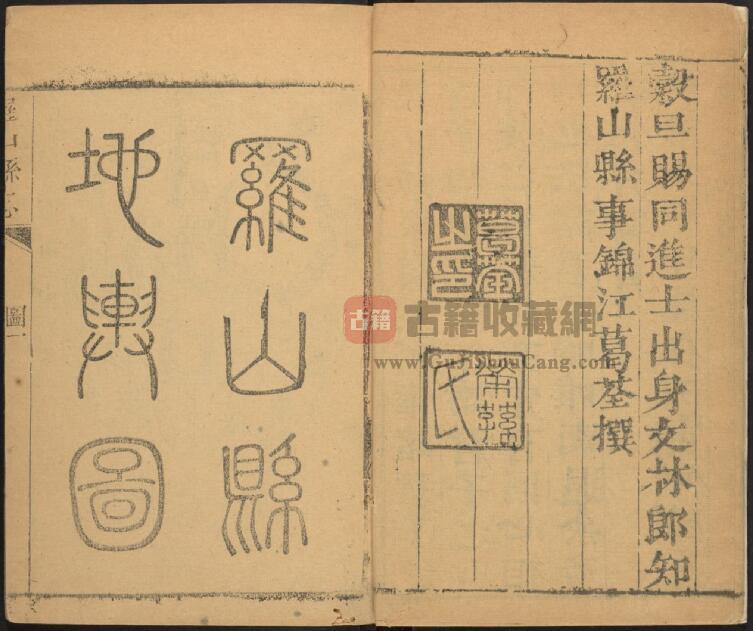 穀旦賜同進士出身文林郎知
羅山縣事錦江葛荃撰
葛荃
之印
氏
羅山縣
地輿圖
羅山縣志
圖一
古籍
古籍收藏網
www.GuJiShouCang.com